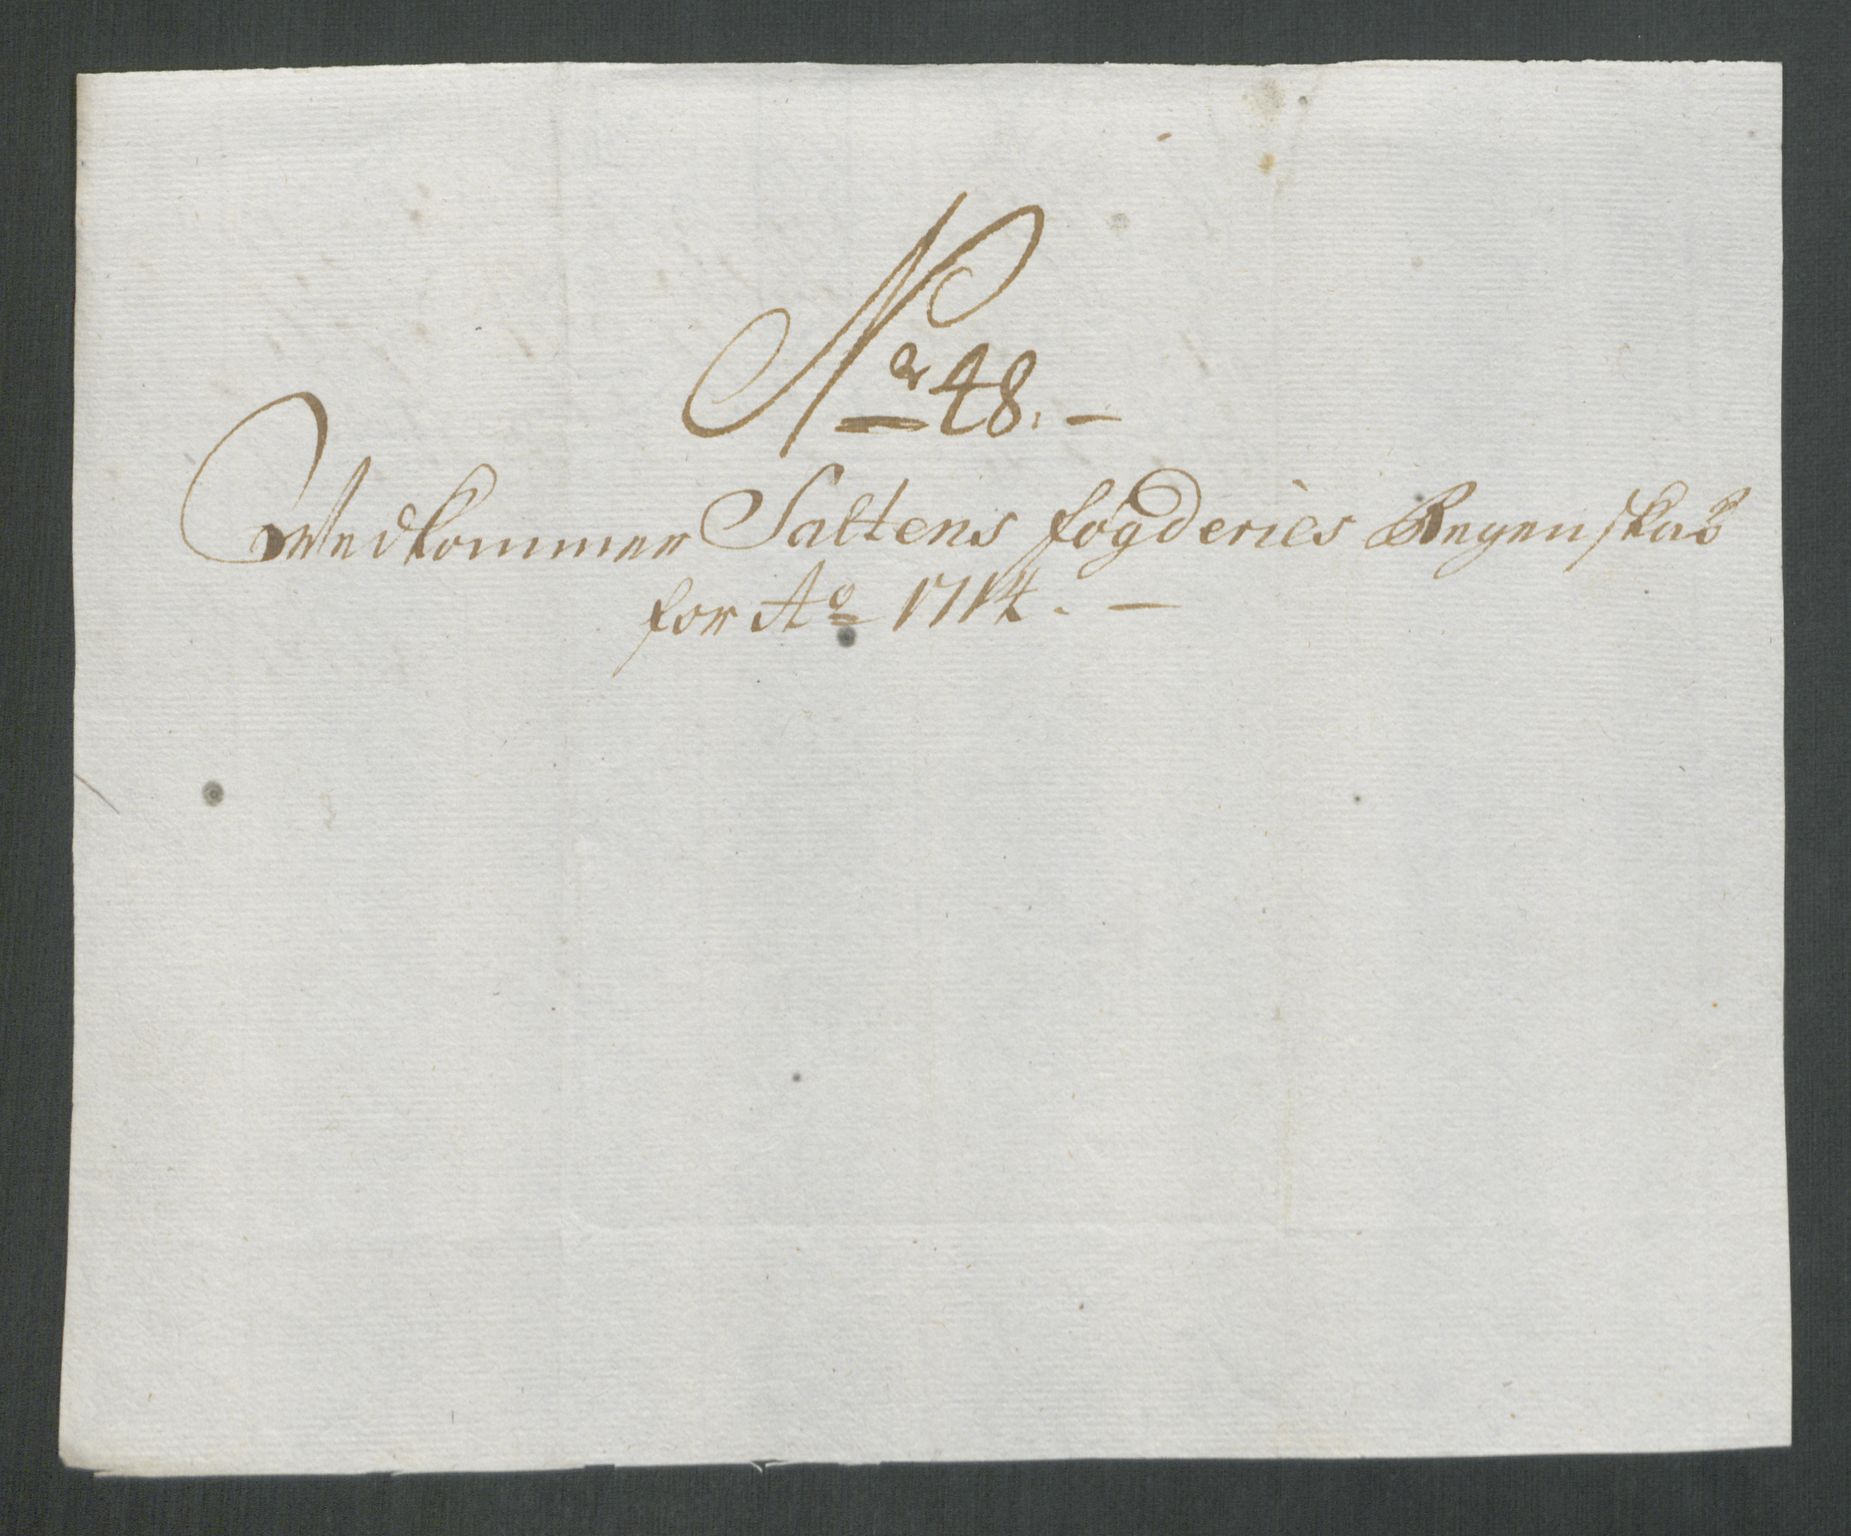 Nr 48. -
Wedkommer Saltens fogderies Regenskab
for Ao 1714. -